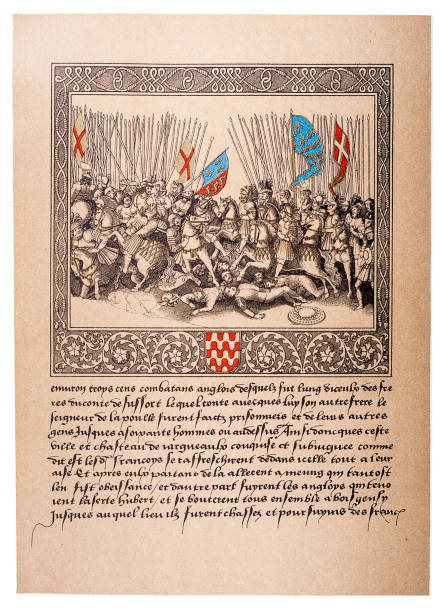 enuiron troys cens combatans anglois desquelz fut lung diceulx des fre
res du conte de suffort lequel conte auecques luy son autre frere le
seigneur de la poulle furent faitz prisonniers et de leurs autres
gens Jusques a soixante hommes ou au dessus Ainsi doncques ceste
ville et chasteau de iargueaulx conquise et subiuguee comme
dit est lesd francoys se raffreschirent dedans icelle tout a leur
aise Et apres eulx partans de la allerent a meung qui tantost
leur fist obeissance / et dautre part fuyrent les anglois qui teno
ient la ferte hubert / et se bouterent tous ensemble a boisgensy
Jusques au quel lieu ilz furent chassez et poursuyuis des francoys